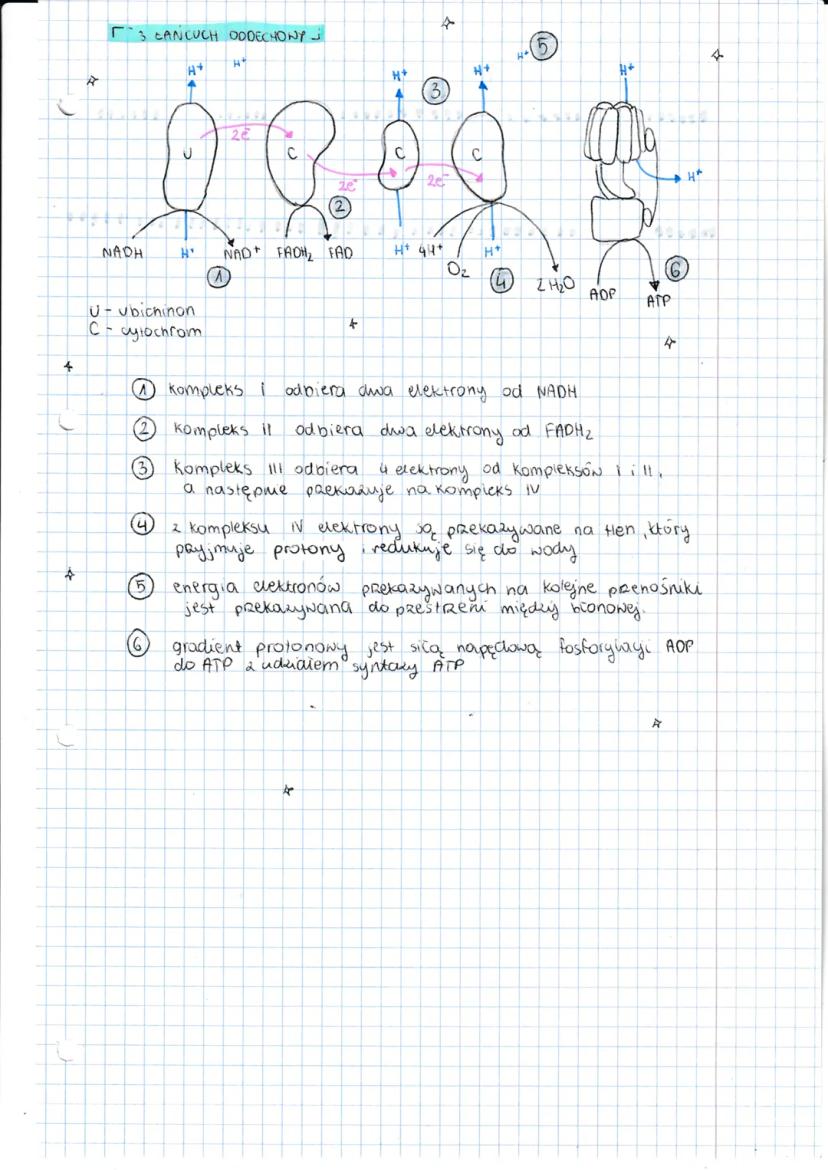 3 ŁAŃCUCH ODDECHOWY
H+ H+ H+ H+ H+ 5 H+
3
U 2e⁻ C 2e⁻ C 2e⁻ C
H+
2
NADH H+ NAD+ FADH₂ FAD H+ 4H+ O₂ H+ 2H₂O ADP ATP
1 4 6
U - ubichinon
C - cytochrom
1 kompleks I odbiera dwa elektrony od NADH
2 kompleks II odbiera dwa elektrony od FADH₂
3 kompleks III odbiera 4 elektrony od kompleksów I i II,
a następnie przekazuje na kompleks IV
4 z kompleksu IV elektrony są przekazywane na tlen, który
przyjmuje protony i redukuje się do wody
5 energia elektronów przekazywanych na kolejne przenośniki
jest przekazywana do przestrzeni między błonowej.
6 gradient protonowy jest siłą napędową fosforylacji ADP
do ATP z udziałem syntazy ATP